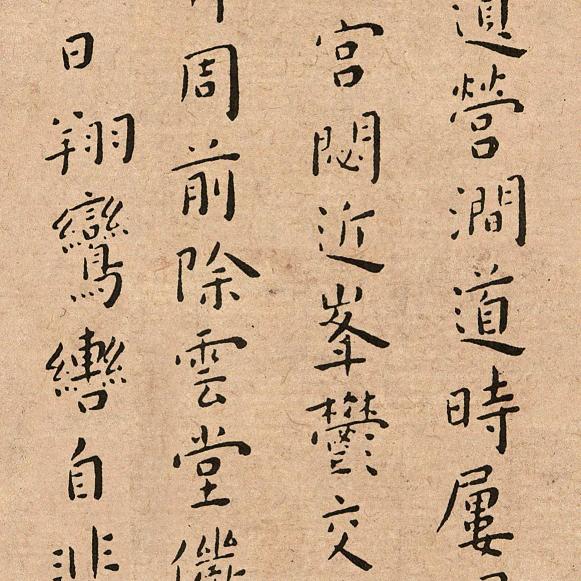 道營澗道時屢
宮閟近峯鬱交
周前除雲堂儼
日翔鸞轡自非